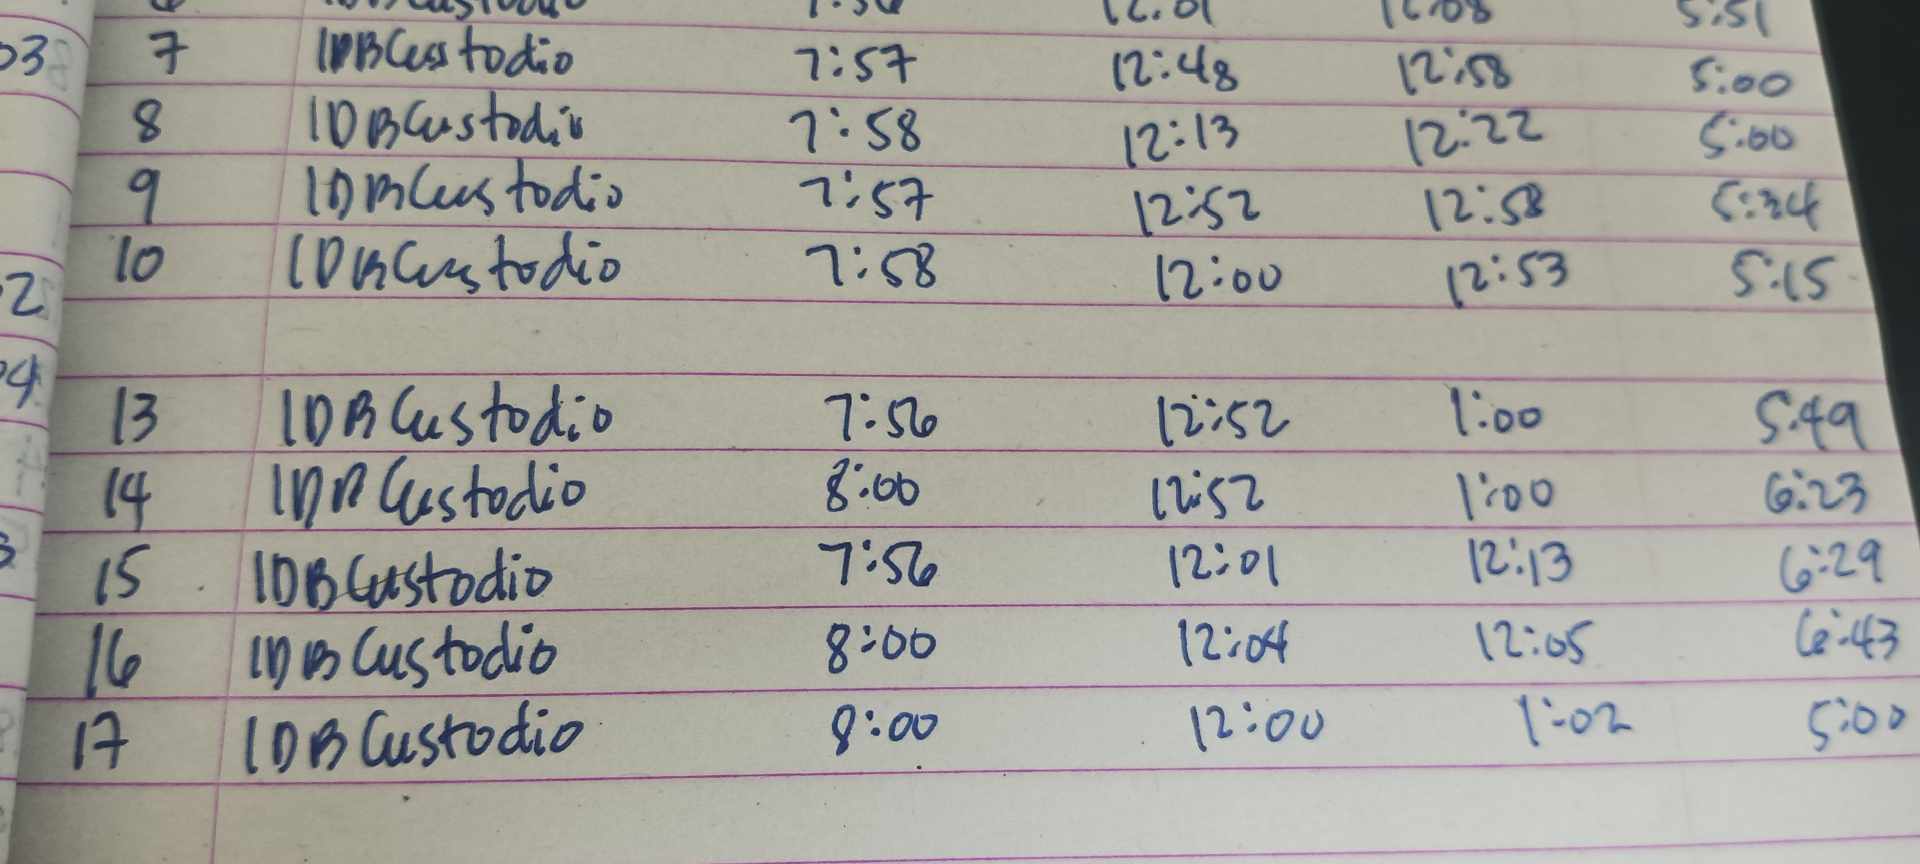 6 IDBCustodio 7:56 12:01 12:08 5:51
7 IDBCustodio 7:57 12:48 12:58 5:00
8 IDBCustodio 7:58 12:13 12:22 5:00
9 IDBCustodio 7:57 12:52 12:58 5:34
10 IDBCustodio 7:58 12:00 12:53 5:15
13 IDBCustodio 7:56 12:52 1:00 5:49
14 IDBCustodio 8:00 12:52 1:00 6:23
15 IDBCustodio 7:56 12:01 12:13 6:29
16 IDBCustodio 8:00 12:04 12:05 6:43
17 IDBCustodio 8:00 12:00 1:02 5:00